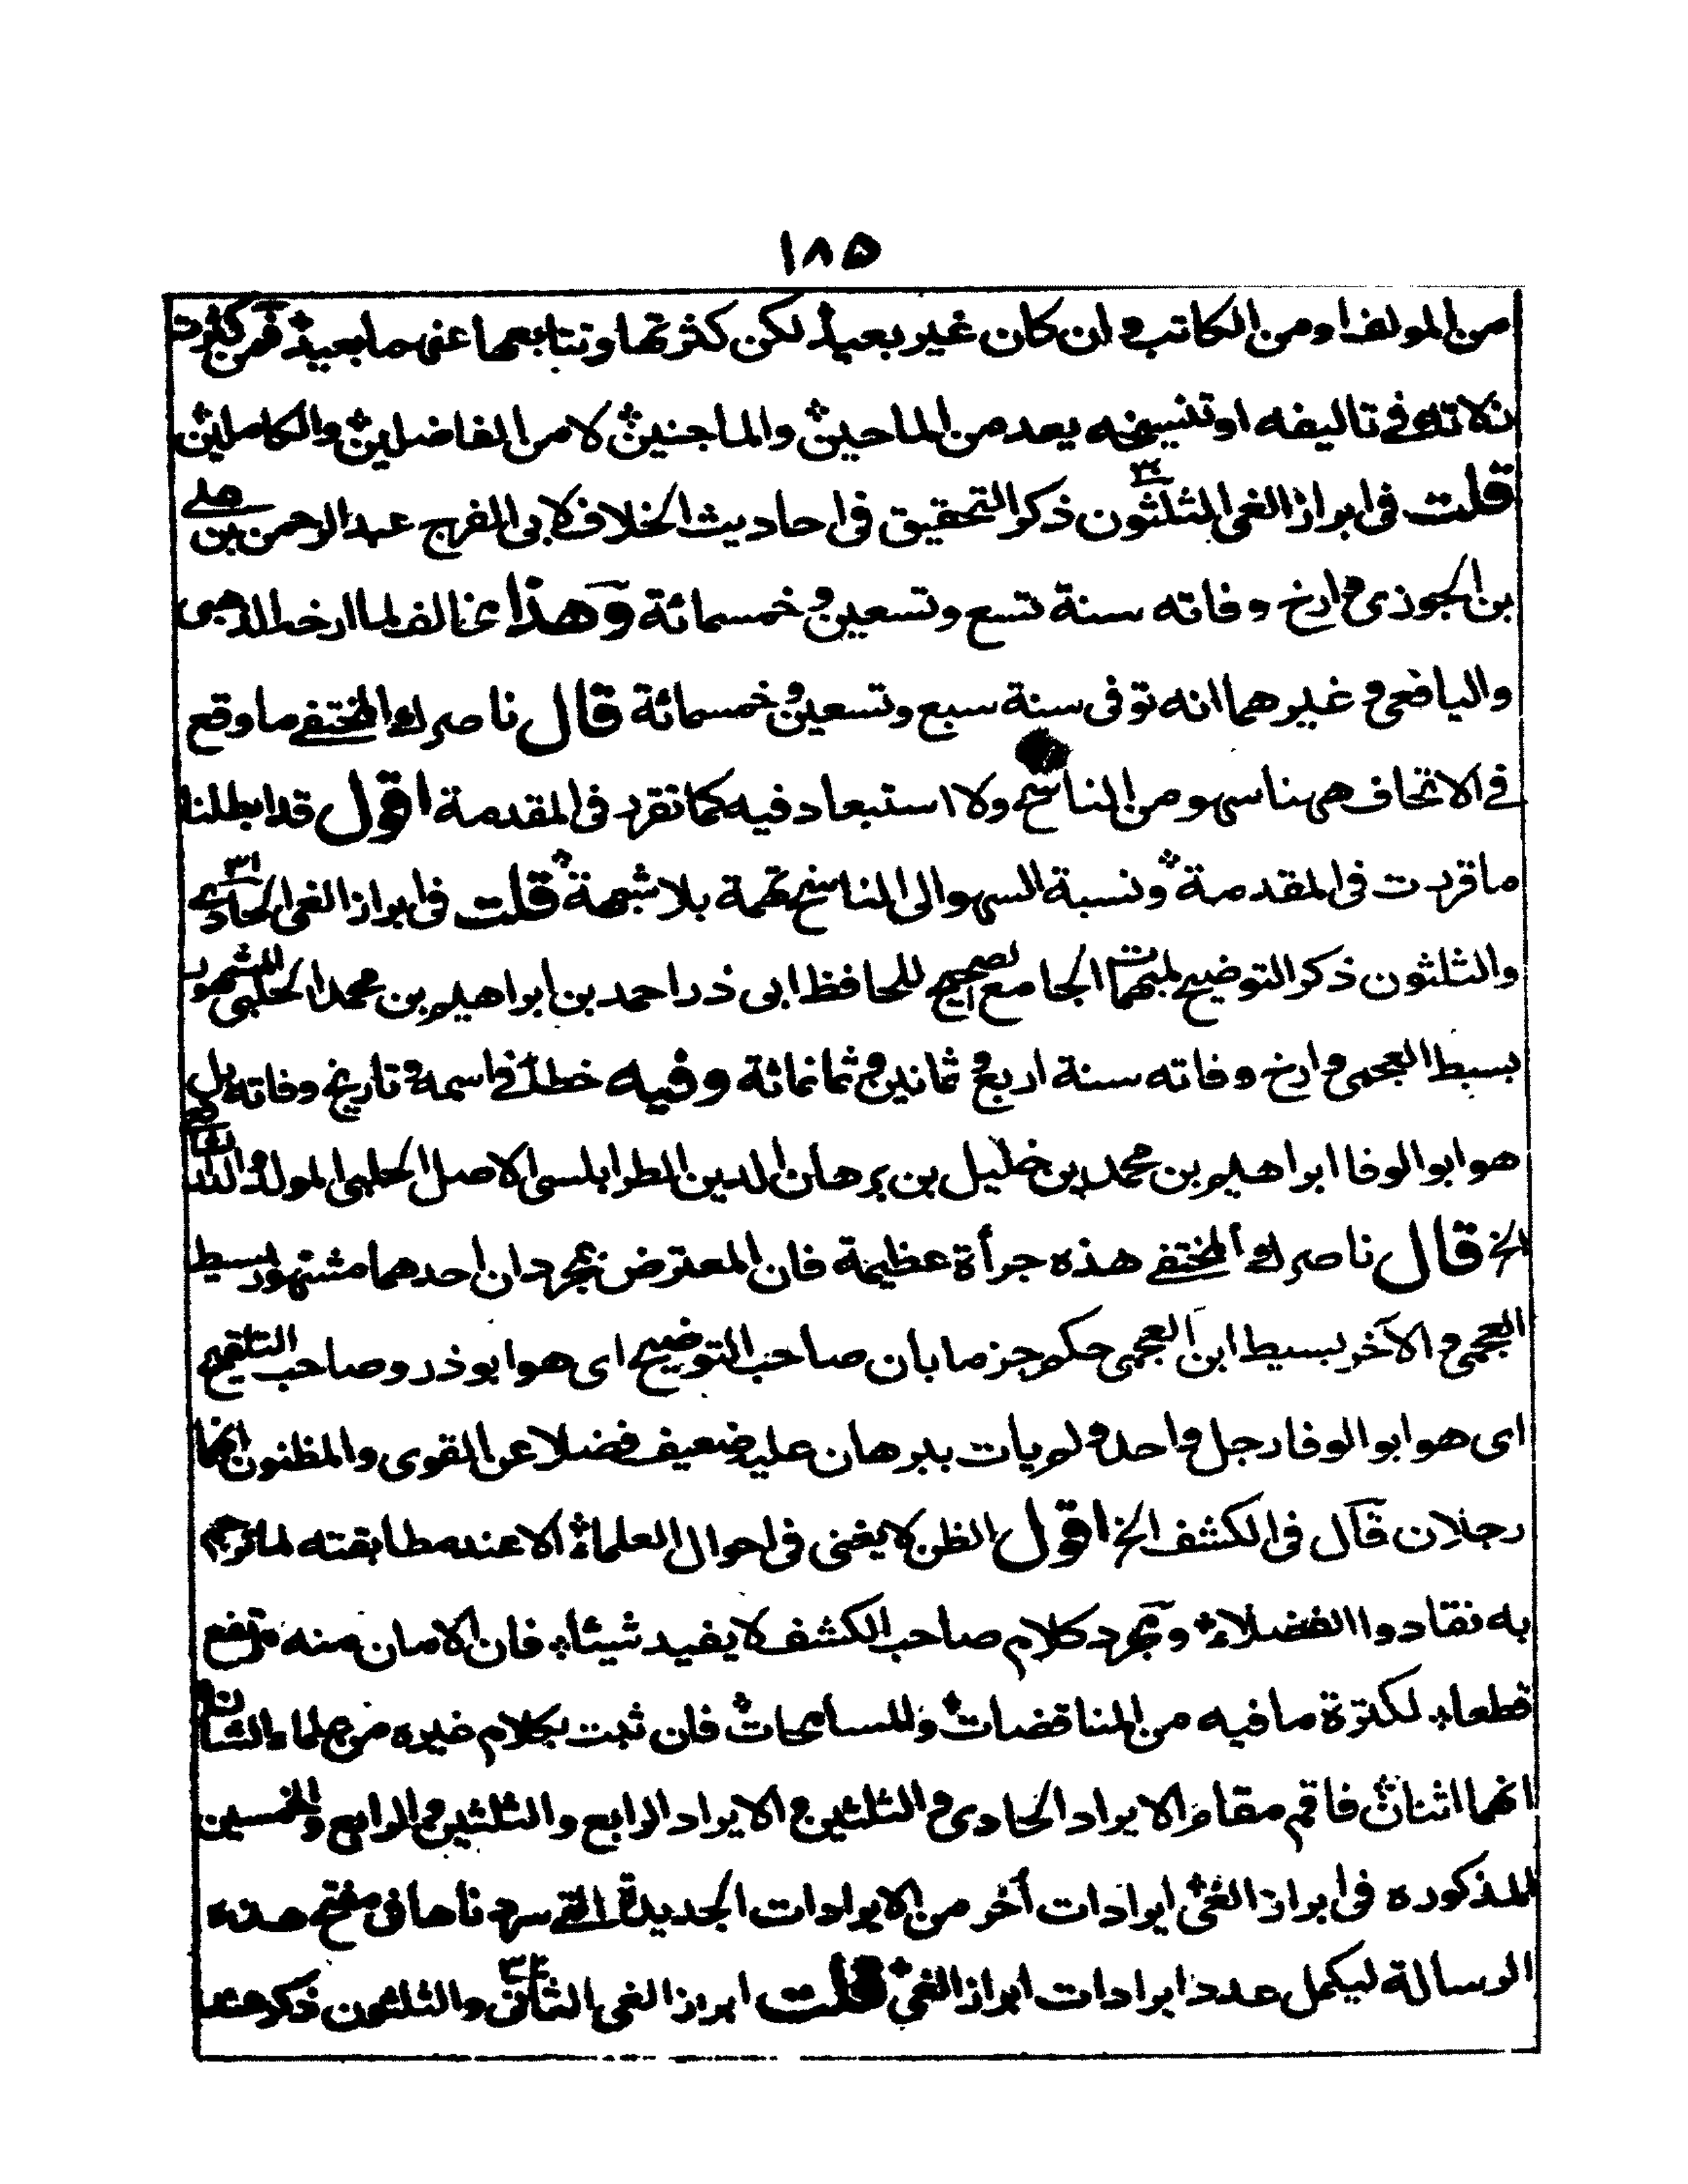 ١٨٥
من المولف او من الكاتب وان كان غير بعيد لكن كثرتها وتتابعها عنهما بعيد فمن كثرت
زلاته في تاليفه او تنسيخه يعد من الماحين والماجنين لا من الفاضلين والكاملين
قلت في ابراز الغى الثلثون ٣٠ ذكر التحقيق فى احاديث الخلاف لابى الفرج عبد الرحمن بن على
بن الجوزى وارخ وفاته سنة تسع وتسعين وخمسمائة وهذا مخالف لما ارخه الذهبى
واليافعى وغيرهما انه توفى سنة سبع وتسعين وخمسمائة قال ناصرك المختفے ما وقع
فے الاتحاف ههنا سهو من الناسخ ولا استبعاد فيه كما تقرر فى المقدمة اقول قد ابطلنا
ما قررت فى المقدمة ونسبة السهو الى الناسخ تهمة بلا شبهة قلت فى ابراز الغى الحادے ٣١
والثلثون ذكر التوضيح لمبهمات الجامع الصحيح للحافظ ابى ذر احمد بن ابراهيم بن محمد الحلبى المشهور
بسبط العجمى وارخ وفاته سنة اربع وثمانين وثمانمائة وفيه خطأ فے اسمه وتاريخ وفاته بل
هو ابو الوفا ابراهيم بن محمد بن خليل بن برهان الدين الطرابلسى الاصل الحلبى المولد والدار
الخ قال ناصرك المختفے هذه جرأة عظيمة فان المعترض بمجرد ان احدهما مشتهر بسبط
العجمى والآخر بسبط ابن العجمى حكم جزما بان صاحب التوضيح اى هو ابو ذر وصاحب التلقيح
اى هو ابو الوفا رجل واحد ولم يات ببرهان عليه ضعيف فضلا عن القوى والمظنون انهما
رجلان قال فى الكشف الخ اقول الظن لا يغنى فى احوال العلماء الا عند مطابقته لما صرح
به نقادوا الفضلاء ومجرد كلام صاحب الكشف لا يفيد شيئا فان الامان منه مرتفع
قطعا لكثرة ما فيه من المناقضات والمسامحات فان ثبت بكلام غيره من علماء الشان
انهما اثنان فاقم مقام الايراد الحادى والثلثين والايراد الرابع والثلثين والرابع والخمسين
المذكوره فى ابراز الغى ايرادات أخر من الايرادات الجديدة التے سردناها فى مفتح هذه
الرسالة ليكمل عدد ايرادات ابراز الغى قلت ابراز الغى الثانى ٣٢ والثلثون ذكر عند